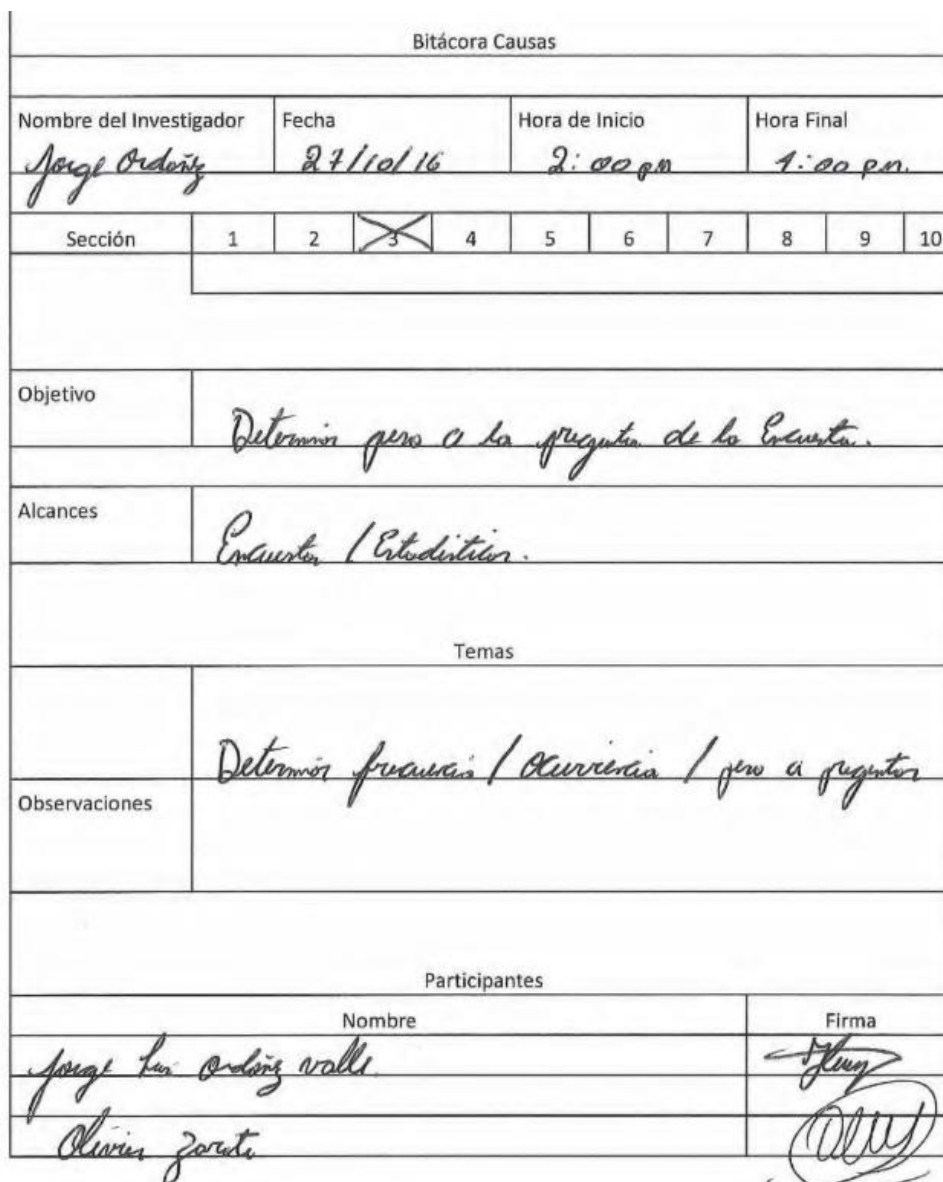 Bitácora Causas
Nombre del Investigador Fecha Hora de Inicio Hora Final
Jorge Ordoñez 27/10/16 2:00 pm 4:00 p.m.
Sección 1 2 3 4 5 6 7 8 9 10
Objetivo
Determinar peso a la pregunta de la Encuesta.
Alcances
Encuesta / Estadística.
Temas
Determinar frecuencia / Ocurrencia / peso a preguntas
Observaciones
Participantes
Nombre Firma
Jorge Luis Ordoñez valle
Olivier Zarate